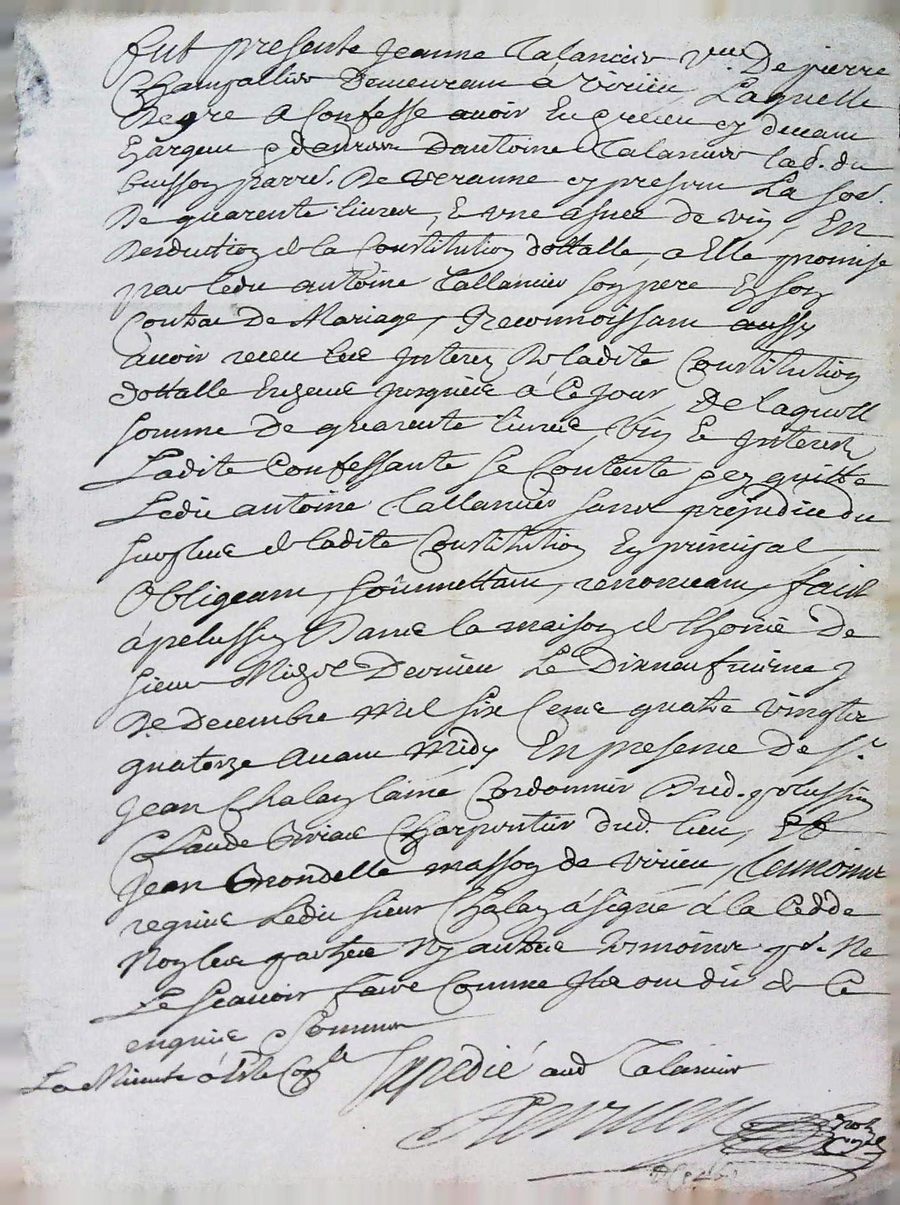 fut presente Jeanne Talancier vve De pierre
Champallier Demeurant a Virieu, Laquelle
De gre a Confesse avoir Eu et receu cy devant
Antoine Talancier lab. du
buisson parr. De veranne cy present La so.
De quarente livres, & une asnee de vin, En
Deduction de la Constitution dottalle, a Elle promise
par ledit antoine Tallancier son pere En son
Contrat De Mariage, Reconnoissant aussy
avoir receu les Interetz De ladite Constitution
dottalle jusques a Ce jour De laquelle
somme De quarente livres, Vin & Interetz
Ladite Confessante Se Contente & en quitte
Ledit antoine Tallancier sans prejudice du
surplus de ladite Constitution En principal
Obligeant, soumettant, renonceant, faict
a pelussin Dans la maison d'hoirie De
sieur Devrieu Le Dixneufviesme
De Decembre Mil six Cens quatre vingtz
quatorze avant Midy En presence De Sr
Jean Chalay laine Cordonnier Dud. pelussin
Claude Charpentier dud. lieu, Et
Jean Grondelle masson de Virieu, temoins
requis Ledit sieur Chalay a signé á la Cedde
Non les parties Ny autres temoins p. Ne
Le Scavoir faire Comme Ils ont dit de Ce
enquis & Sommes
La Minute
Expedié aud Talancier
Devrieu